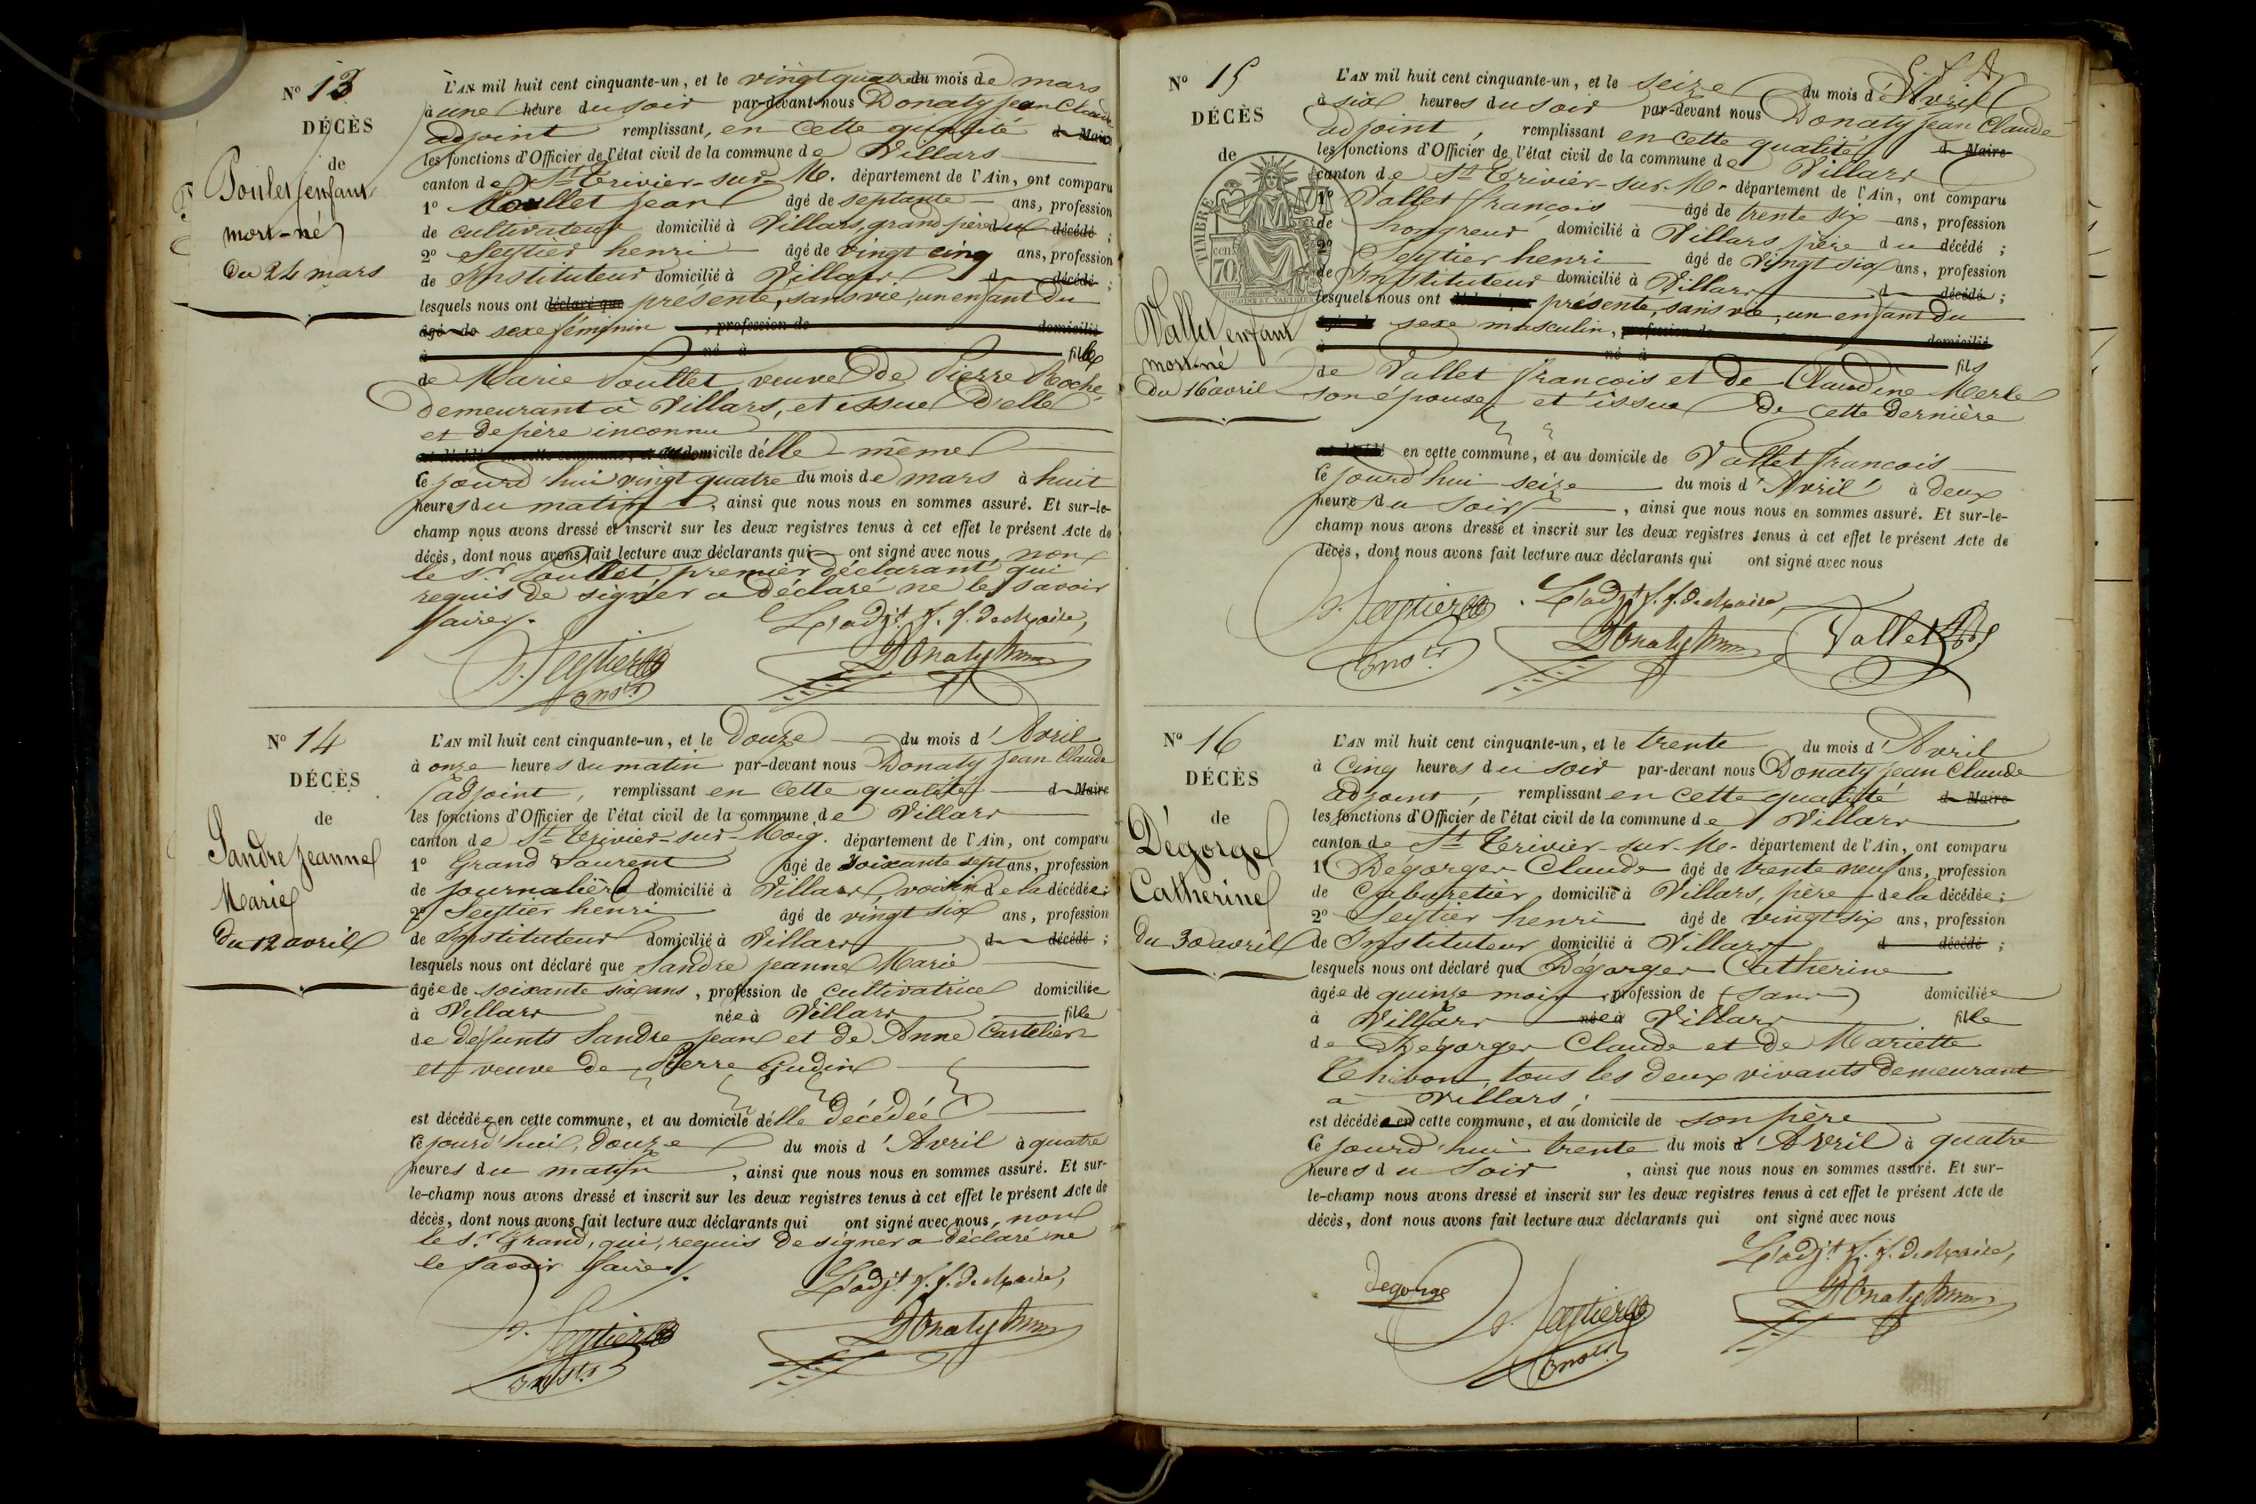 N° 13
DÉCÈS
de
Poulet enfant
mort-né
Du 24 mars
L'AN mil huit cent cinquante-un, et le vingt quatre du mois de mars
à une heure du soir par-devant nous Donaty Jean Claude
adjoint remplissant, en cette qualité d Maire
les fonctions d'Officier de l'état civil de la commune de Villars
canton de St Trivier-sur-M. département de l'Ain, ont comparu
1° Poullet Jean âgé de septante ans, profession
de cultivateur domicilié à Villars, grand père du décédé ;
2° Seytier henri âgé de vingt cinq ans, profession
de Instituteur domicilié à Villars d décédé ;
lesquels nous ont déclaré que présenté, sans vie, un enfant du
âgé de sexe féminin , profession de domicilié
à né à fille
de Marie Poullet, veuve de Pierre Roche,
demeurant à Villars, et issue d'elle
et de père inconnu
est décédé en cette commune, et au domicile d'elle-même
Ce jourd'hui vingt quatre du mois de mars à huit
heures du matin , ainsi que nous nous en sommes assuré. Et sur-le-
champ nous avons dressé et inscrit sur les deux registres tenus à cet effet le présent Acte de
décès, dont nous avons fait lecture aux déclarants qui ont signé avec nous, non
le Sr Poullet, premier déclarant, qui
requis de signer a déclaré ne le savoir
faire.
L'adjt f. f. de Maire,
h. Seytier
Donaty
instr
N° 14
DÉCÈS
de
Sandre Jeanne
Marie
Du 12 avril
L'AN mil huit cent cinquante-un, et le Douze du mois d'Avril
à onze heures du matin par-devant nous Donaty Jean Claude
adjoint, remplissant en cette qualité d Maire
les fonctions d'Officier de l'état civil de la commune de Villars
canton de St Trivier-sur-Moig. département de l'Ain, ont comparu
1° Grand Laurent âgé de soixante sept ans, profession
de journalier domicilié à Villars, voisin de la décédée ;
2° Seytier henri âgé de vingt six ans, profession
de Instituteur domicilié à Villars d décédé ;
lesquels nous ont déclaré que Sandre Jeanne Marie
âgée de soixante six ans, profession de cultivatrice domiciliée
à Villars née à Villars fille
de défunts Sandre Jean et de Anne Cartelier
et veuve de Pierre Gudin
est décédée en cette commune, et au domicile d'elle décédée
Ce jourd'hui, douze du mois d'Avril à quatre
heures du matin , ainsi que nous nous en sommes assuré. Et sur-
le-champ nous avons dressé et inscrit sur les deux registres tenus à cet effet le présent Acte de
décès, dont nous avons fait lecture aux déclarants qui ont signé avec nous, non
le Sr Grand, qui, requis de signer a déclaré ne
le savoir faire.
L'adjt f. f. de Maire,
h. Seytier
Donaty
instr
N° 15
DÉCÈS
de
TIMBRE
70 cen
Vallet enfant
mort-né
Du 16 avril
L'AN mil huit cent cinquante-un, et le seize du mois d'Avril
à six heures du soir par-devant nous Donaty Jean Claude
adjoint, remplissant en cette qualité d Maire
les fonctions d'Officier de l'état civil de la commune de Villars
canton de St Trivier-sur-M. département de l'Ain, ont comparu
1° Vallet françois âgé de trente six ans, profession
de hongreur domicilié à Villars père du décédé ;
2° Seytier henri âgé de vingt six ans, profession
de Instituteur domicilié à Villars d décédé ;
lesquels nous ont présenté, sans vie, un enfant du
sexe masculin, profession de domicilié
à né à fils
de Vallet françois et de Claudine Merle
son épouse, et issu de cette dernière
en cette commune, et au domicile de Vallet françois
Ce jourd'hui seize du mois d'Avril à deux
heures du soir , ainsi que nous nous en sommes assuré. Et sur-le-
champ nous avons dressé et inscrit sur les deux registres tenus à cet effet le présent Acte de
décès, dont nous avons fait lecture aux déclarants qui ont signé avec nous
L'adjt f. f. de Maire,
h. Seytier
Donaty
Vallet
instr
N° 16
DÉCÈS
de
Dégorge
Catherine
Du 30 avril
L'AN mil huit cent cinquante-un, et le trente du mois d'Avril
à Cinq heures du soir par-devant nous Donaty Jean Claude
adjoint, remplissant en cette qualité d Maire
les fonctions d'Officier de l'état civil de la commune de Villars
canton de St Trivier-sur-M. département de l'Ain, ont comparu
1° Dégorger Claude âgé de trente neuf ans, profession
de Cabaretier domicilié à Villars, père de la décédée ;
2° Seytier henri âgé de vingt six ans, profession
de Instituteur domicilié à Villars d décédé ;
lesquels nous ont déclaré que Dégorger Catherine
âgée de quinze mois, profession de (sans) domiciliée
à Villars née à Villars fille
de Dégorger Claude et de Mariette
Thivon, tous les deux vivants demeurant
à Villars ;
est décédée en cette commune, et au domicile de son père
Ce jourd'hui trente du mois d'Avril à quatre
heures du soir , ainsi que nous nous en sommes assuré. Et sur-
le-champ nous avons dressé et inscrit sur les deux registres tenus à cet effet le présent Acte de
décès, dont nous avons fait lecture aux déclarants qui ont signé avec nous
L'adjt f. f. de Maire,
degorge
h. Seytier
Donaty
instr